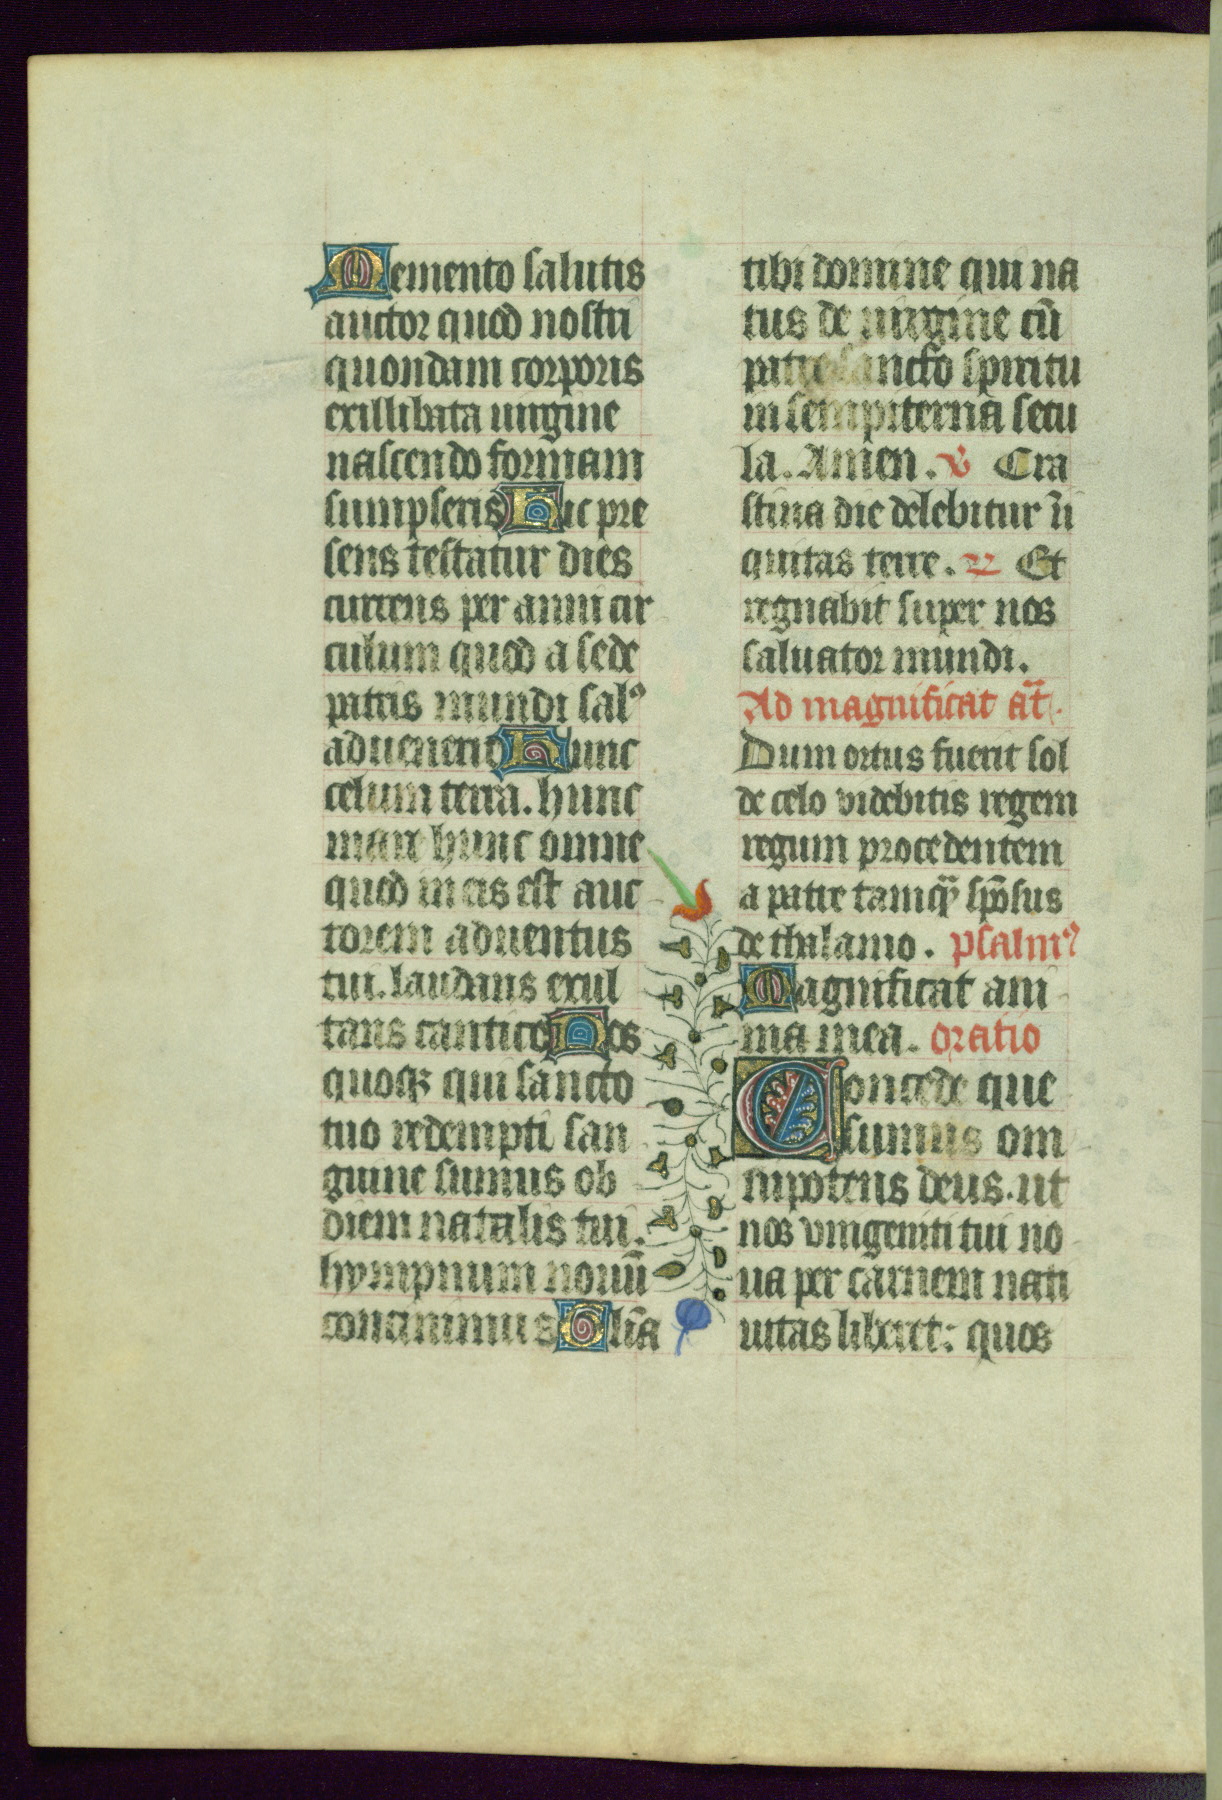 Memento salutis
auctor quod nostri
quondam corporis
exillibata uirgine
nascendo formam
sumpseris Hic pre
sens testatur dies
currens per anni cir
culum quod a sede
patris mundi salꝰ
adueneris Hunc
celum terra. hunc
mare hunc omne
quod in eis est auc
torem aduentus
tui. laudans exul
tans cantico Nos
quoqꝫ qui sancto
tuo redempti san
guine sumus ob
diem natalis tui.
hympnum nouū
concinimus Gl̄ia
tibi domine qui na
tus de uirgine cū
patre sancto spiritu
in sempiterna secu
la. Amen. v Cra
stina die delebitur īi
quitas terre. r Et
regnabit super nos
saluator mundi.
Ad magnificat an̄t.
Dum ortus fuerit sol
de celo videbitis regem
regum procedentem
a patre tamqͣ̄ spōsus
de thalamo. psalmꝰ
Magnificat ani
ma mea. oratio
Concede que
sumus om
nipotens deus. ut
nos vnigeniti tui no
ua per carnem nati
uitas liberet: quos